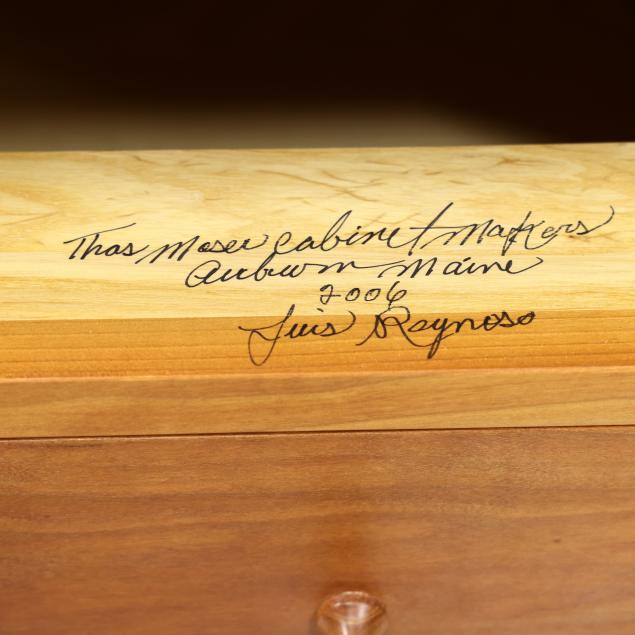 Thos Moser Cabinet Makers
Auburn Maine
2006
Luis Reynoso